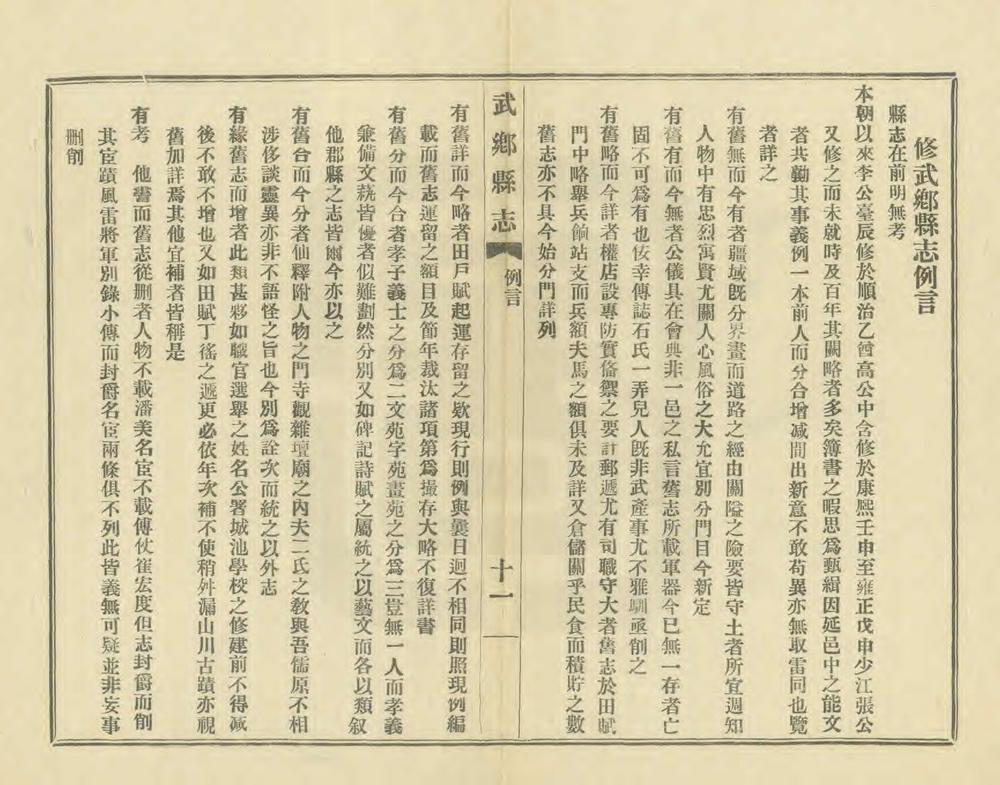 修武鄉縣志例言
縣志在前明無考
本朝以來李公臺辰修於順治乙酋高公中含修於康熙壬申至雍正戊申少江張公
又修之而未就時及百年其闕略者多矣簿書之暇思為甄緝因延邑中之能文
者共勷其事義例一本前人而分合增減間出新意不敢苟異亦無取雷同也覽
者詳之
有舊無而今有者疆域既分界畫而道路之經由關隘之險要皆守土者所宜週知
人物中有忠烈寓賢尤關人心風俗之大尤宜別分門目今新定
有舊有而今無者公儀具在會典非一邑之私言舊志所載軍器今已無一存者亡
固不可為有也佞幸傳誌石氏一弄兒人既非武產事尤不雅馴亟削之
有舊略而今詳者權店設專防實偹禦之要訂郵遞尤有司職守大者舊志於田賦
門中略舉兵餉站支而兵額夫馬之額俱未及詳又倉儲關乎民食而積貯之數
舊志亦不具今始分門詳列
武鄉縣志
例言
十一
有舊詳而今略者田戶賦起運存留之欵現行則例與曩日迥不相同則照現例編
載而舊志運留之額目及節年裁汰諸項第為撮存大略不復詳書
有舊分而今合者孝子義士之分為二文苑字苑畫苑之分為三豈無一人而孝義
兼備文藝皆優者似難劃然分別又如碑記詩賦之屬統之以藝文而各以類叙
他郡縣之志皆爾今亦以之
有舊合而今分者仙釋附人物之門寺觀雜壇廟之內夫二氏之教與吾儒原不相
涉侈談靈異亦非不語怪之旨也今別為詮次而統之以外志
有緣舊志而增者此類甚夥如職官選舉之姓名公署城池學校之修建前不得減
後不敢不增也又如田賦丁徭之遞更必依年次補不使稍舛漏山川古蹟亦視
舊加詳焉其他宜補者皆稱是
有考 他書而舊志從刪者人物不載潘美名宦不載傅伏崔宏度但志封爵而削
其宦蹟風雷將軍別錄小傳而封爵名宦兩條俱不列此皆義無可疑並非妄事
刪削